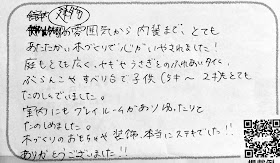 の雰囲気から内装まで、とても
あたたかい木づくりで心がいやされました！
庭もとても広く、ヤギやうさぎとのふれあいタイム、
ぶらんこやすべり台で子供(5才〜2才)もとても
たのしんでいました。
室内にもプレイルームがありゆったりと
たのしめました。
木づくりのおもちゃや装飾、本当にステキでした!!
ありがとうございました!!